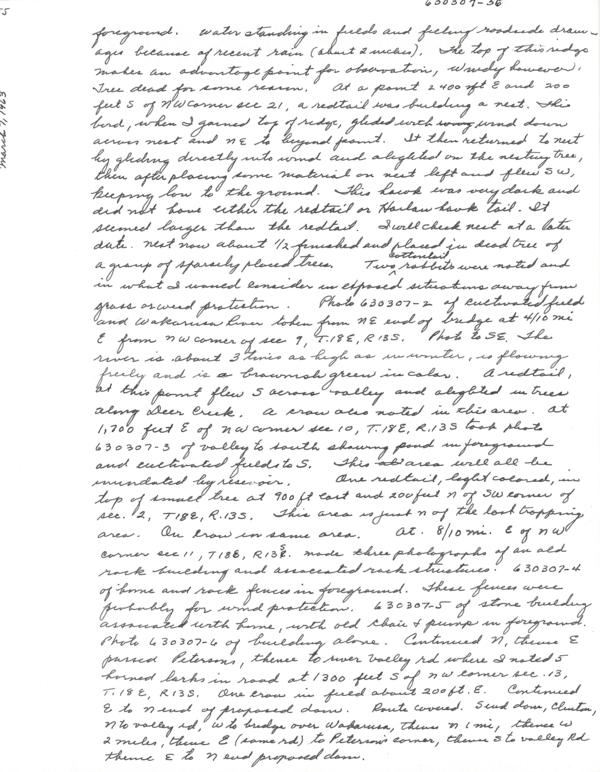 630307-36
March 7, 1963
foreground. Water standing in fields and feeling roadside drain-
ages because of recent rain (about 2 inches). The top of this ridge
makes an advantage point for observation, windy however.
Tree dead for some reason. At a point 2400 ft E and 200
feet S of NW corner sec 21, a redtail was building a nest. This
bird, when I gained top of ridge, glided with wind down
across nest and NE to beyond point. It then returned to nest
by gliding directly into wind and alighted on the nesting tree,
then after placing some material on nest left and flew SW,
keeping low to the ground. This hawk was very dark and
did not have either the redtail or Harlan hawk tail. It
seemed larger than the redtail. I will check nest at a later
date. Nest now about 1/2 finished and placed in dead tree of
a group of sparsely placed trees. Two cottontail rabbits were noted and
in what I would consider in exposed situations away from
grass or weed protection. Photo 630307-2 of cultivated field
and Wakarusa River taken from NE end of bridge at 4/10 mi
E from NW corner of sec 9, T.18E, R.13S. Photo to SE. The
river is about 3 times as high as in winter, is flowing
freely and is a brownish green in color. A redtail,
at this point flew S across valley and alighted in trees
along Deer Creek. A crow also noted in this area. At
1,700 feet E of NW corner sec 10, T.18E, R.13S took photo
630307-3 of valley to south showing pond in foreground
and cultivated fields to S. This area will all be
inundated by reservoir. One redtail, light colored, in
top of small tree at 900 ft east and 200 feet N of SW corner of
sec. 2, T18E, R.13S. This area is just N of the last trapping
area. One crow in same area. At 8/10 mi. E of NW
corner sec 11, T18E, R13S. made three photographs of an old
rock building and associated rock structures. 630307-4
of home and rock fences in foreground. These fences were
probably for wind protection. 630307-5 of stone building
associated with home, with old chair & pump in foreground.
Photo 630307-6 of building alone. Continued N, thence E
passed Petersons, thence to river valley rd where I noted 5
horned larks in road at 1300 feet S of NW corner sec. 13,
T.18E, R13S. One crow in field about 200 ft. E. Continued
E to N end of proposed dam. Route covered. S end dam, Clinton,
N to valley rd, W to bridge over Wakarusa, thence N 1 mi, thence W
2 miles, thence E (same rd) to Peterson's corner, thence S to valley Rd
thence E to N end proposed dam.